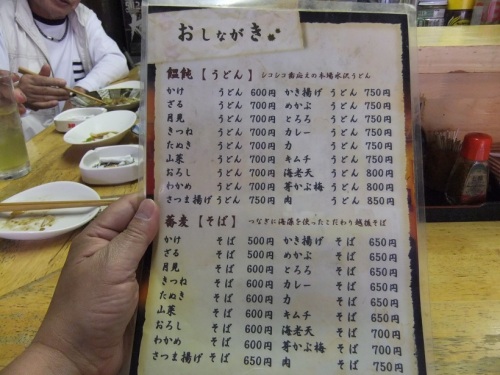 おしながき
饂飩【うどん】 シコシコ歯応えの本場水沢うどん
かけ うどん 600円 かき揚げ うどん 750円
ざる うどん 700円 めかぶ うどん 750円
月見 うどん 700円 とろろ うどん 750円
きつね うどん 700円 カレー うどん 750円
たぬき うどん 700円 力 うどん 750円
山菜 うどん 700円 キムチ うどん 750円
おろし うどん 700円 海老天 うどん 800円
わかめ うどん 700円 芽かぶ梅 うどん 800円
さつま揚げ うどん 750円 肉 うどん 850円
蕎麦【そば】 つなぎに海藻を使ったこだわり越後そば
かけ そば 500円 かき揚げ そば 650円
ざる そば 500円 めかぶ そば 650円
月見 そば 600円 とろろ そば 650円
きつね そば 600円 カレー そば 650円
たぬき そば 600円 力 そば 650円
山菜 そば 600円 キムチ そば 650円
おろし そば 600円 海老天 そば 700円
わかめ そば 600円 芽かぶ梅 そば 700円
さつま揚げ そば 650円 肉 そば 750円